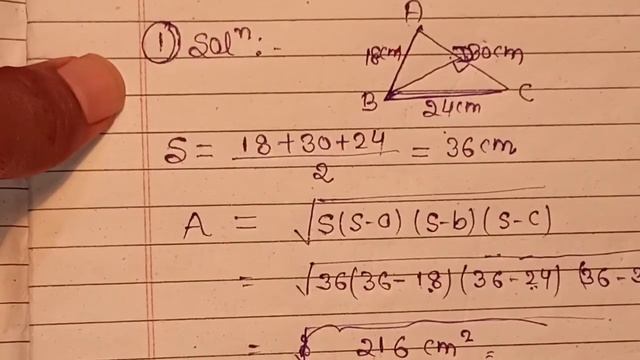 ① Solⁿ:-
A
18cm 30cm
B C
24cm
S = 18+30+24 / 2 = 36 cm
A = √S(S-a)(S-b)(S-c)
= √36(36-18)(36-24)(36-3
= 216 cm²